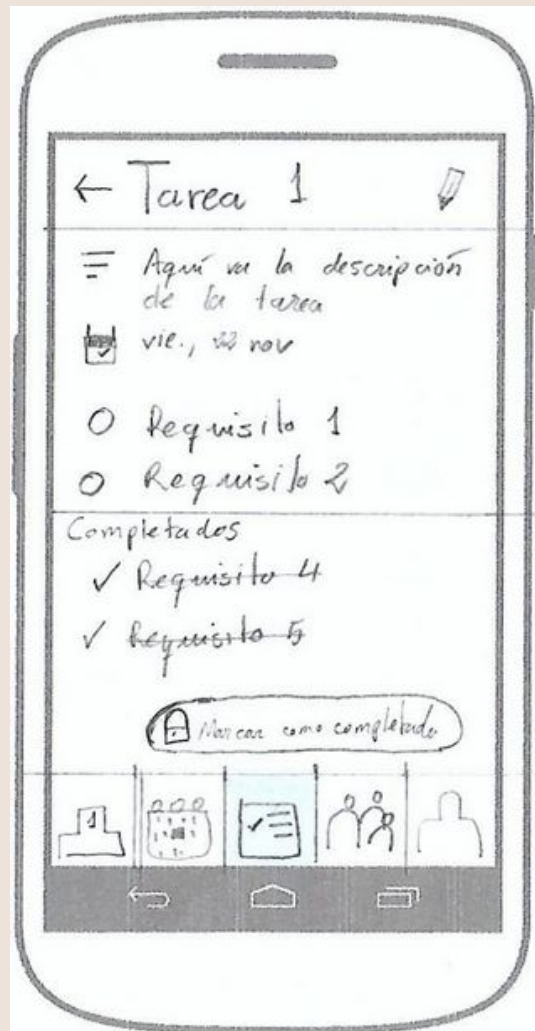 Tarea 1
Aquí va la descripción
de la tarea
vie., 22 nov
Requisito 1
Requisito 2
Completados
Requisito 4
Requisito 5
Marcar como completado
1